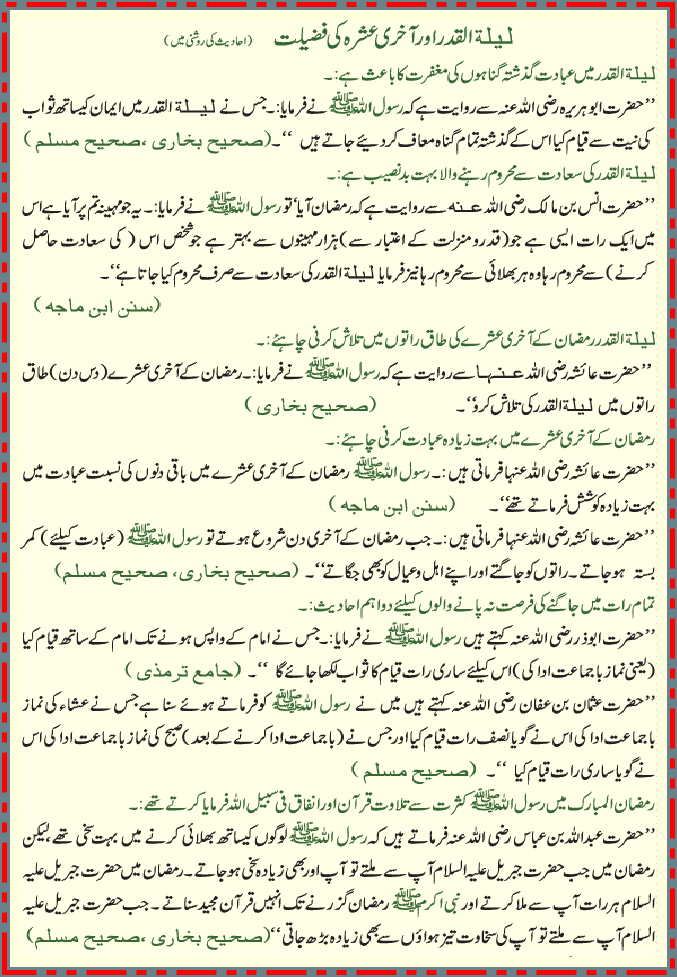 لیلۃ القدر اور آخری عشرہ کی فضیلت (احادیث کی روشنی میں)
لیلۃ القدر میں عبادت گذشتہ گناہوں کی مغفرت کا باعث ہے:۔
’’حضرت ابو ہریرہ رضی اللہ عنہ سے روایت ہے کہ رسول اللہ ﷺ نے فرمایا:۔ جس نے لیلۃ القدر میں ایمان کیساتھ ثواب
کی نیت سے قیام کیا اس کے گذشتہ تمام گناہ معاف کر دیئے جاتے ہیں ‘‘۔ (صحیح بخاری ،صحیح مسلم )
لیلۃ القدر کی سعادت سے محروم رہنے والا بہت بدنصیب ہے:۔
’’حضرت انس بن مالک رضی اللہ عنہ سے روایت ہے کہ رمضان آیا‘ تو رسول اللہ ﷺ نے فرمایا:۔ یہ جو مہینہ تم پر آیا ہے اس
میں ایک رات ایسی ہے جو (قدر و منزلت کے اعتبار سے) ہزار مہینوں سے بہتر ہے جو شخص اس ( کی سعادت حاصل
کرنے ) سے محروم رہا وہ ہر بھلائی سے محروم رہا نیز فرمایا لیلۃ القدر کی سعادت سے صرف محروم کیا جاتا ہے‘‘۔
(سنن ابن ماجه )
لیلۃ القدر رمضان کے آخری عشرے کی طاق راتوں میں تلاش کرنی چاہئے:۔
’’حضرت عائشہ رضی اللہ عنہا سے روایت ہے کہ رسول اللہ ﷺ نے فرمایا:۔ رمضان کے آخری عشرے (دس دن) طاق
راتوں میں لیلۃ القدر کی تلاش کرو‘‘۔ (صحیح بخاری )
رمضان کے آخری عشرے میں بہت زیادہ عبادت کرنی چاہئے:۔
’’حضرت عائشہ رضی اللہ عنہا فرماتی ہیں :۔ رسول اللہ ﷺ رمضان کے آخری عشرے میں باقی دنوں کی نسبت عبادت میں
بہت زیادہ کوشش فرماتے تھے‘‘۔ (سنن ابن ماجه )
’’حضرت عائشہ رضی اللہ عنہا فرماتی ہیں :۔ جب رمضان کے آخری دن شروع ہوتے تو رسول اللہ ﷺ (عبادت کیلئے) کمر
بستہ ہو جاتے ۔ راتوں کو جاگتے اور اپنے اہل و عیال کو بھی جگاتے ‘‘۔ (صحیح بخاری، صحیح مسلم)
تمام رات میں جاگنے کی فرصت نہ پانے والوں کیلئے دو اہم احادیث:۔
’’حضرت ابوذر رضی اللہ عنہ کہتے ہیں رسول اللہ ﷺ نے فرمایا:۔ جس نے امام کے واپس ہونے تک امام کے ساتھ قیام کیا
(یعنی نماز باجماعت ادا کی) اس کیلئے ساری رات قیام کا ثواب لکھا جائے گا ‘‘۔ (جامع ترمذی )
’’حضرت عثمان بن عفان رضی اللہ عنہ کہتے ہیں میں نے رسول اللہ ﷺ کو فرماتے ہوئے سنا ہے جس نے عشاء کی نماز
باجماعت ادا کی اس نے گویا نصف رات قیام کیا اور جس نے (باجماعت ادا کرنے کے بعد) صبح کی نماز باجماعت ادا کی اس
نے گویا ساری رات قیام کیا ‘‘۔ (صحیح مسلم )
رمضان المبارک میں رسول اللہ ﷺ کثرت سے تلاوت قرآن اور انفاق فی سبیل اللہ فرمایا کرتے تھے:۔
’’حضرت عبداللہ بن عباس رضی اللہ عنہ فرماتے ہیں کہ رسول اللہ ﷺ لوگوں کیساتھ بھلائی کرنے میں بہت سخی تھے، لیکن
رمضان میں جب حضرت جبریل علیہ السلام آپ سے ملتے تو آپ اور بھی زیادہ سخی ہو جاتے ۔ رمضان میں حضرت جبریل علیہ
السلام ہر رات آپ سے ملا کرتے اور نبی اکرم ﷺ رمضان گزرنے تک انہیں قرآن مجید سناتے ۔ جب حضرت جبریل علیہ
السلام آپ سے ملتے تو آپ کی سخاوت تیز ہواؤں سے بھی زیادہ بڑھ جاتی ‘‘ (صحیح بخاری ،صحیح مسلم)